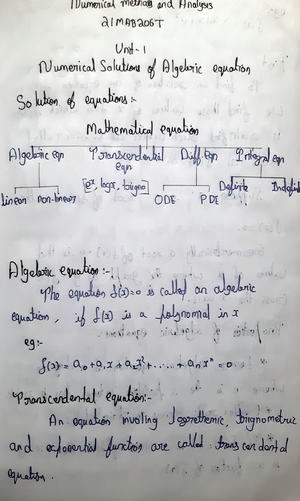 Numerical methods and Analysis
21MAB206T
Unit-1
Numerical Solutions of Algebric equation
Solution of equations:-
Mathematical equation
Algebric eqn Transcendential eqn Diff. eqn Integral eqn
linear non-linear [e^x, logx, trigno] ODE PDE Definite Indefinite
Algebric equation:-
The equation f(x)=0 is called an algebric
equation, if f(x) is a polynomial in x
eg:-
f(x) = a₀+a₁x+a₂x²+.....+aₙxⁿ=0
Transcendental equation:-
An equation involing logorethemic, trignometric
and exponential function are called transcendental
equation.